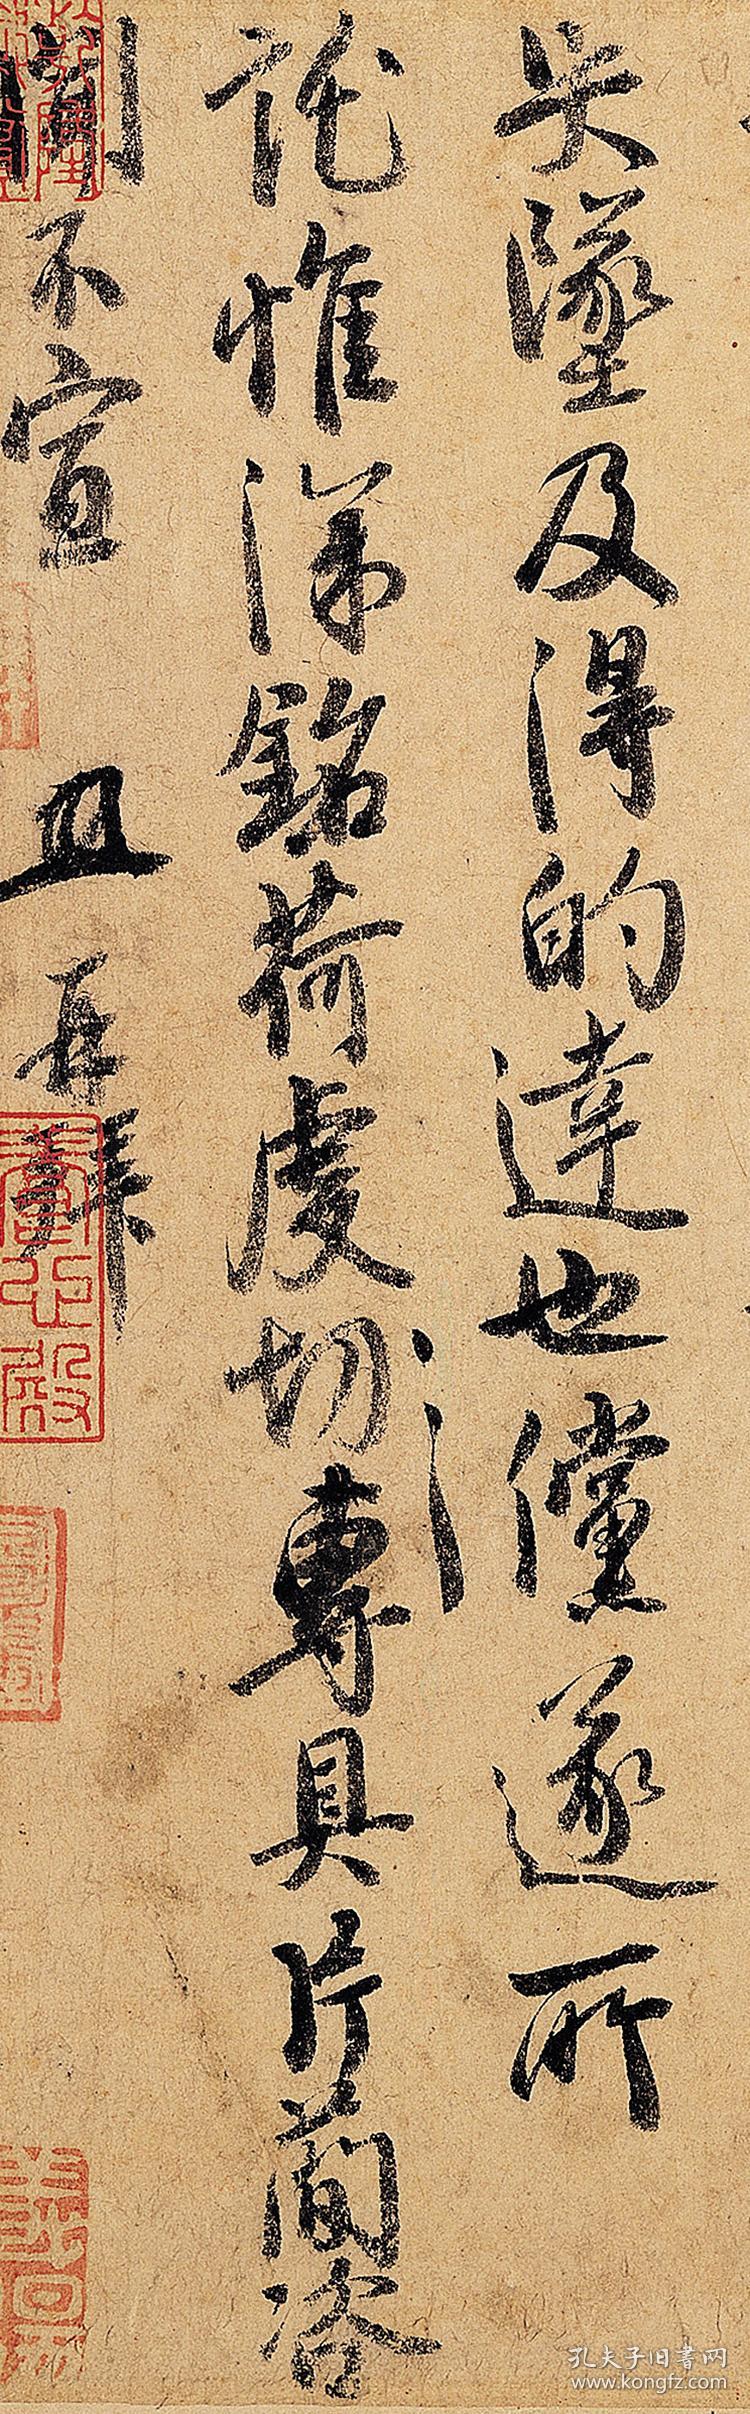 失墜及得的達也儻遂所
託惟深銘荷虔切專具片簡咨
聞不宣 且 再拜
孔夫子旧書网
www.kongfz.com